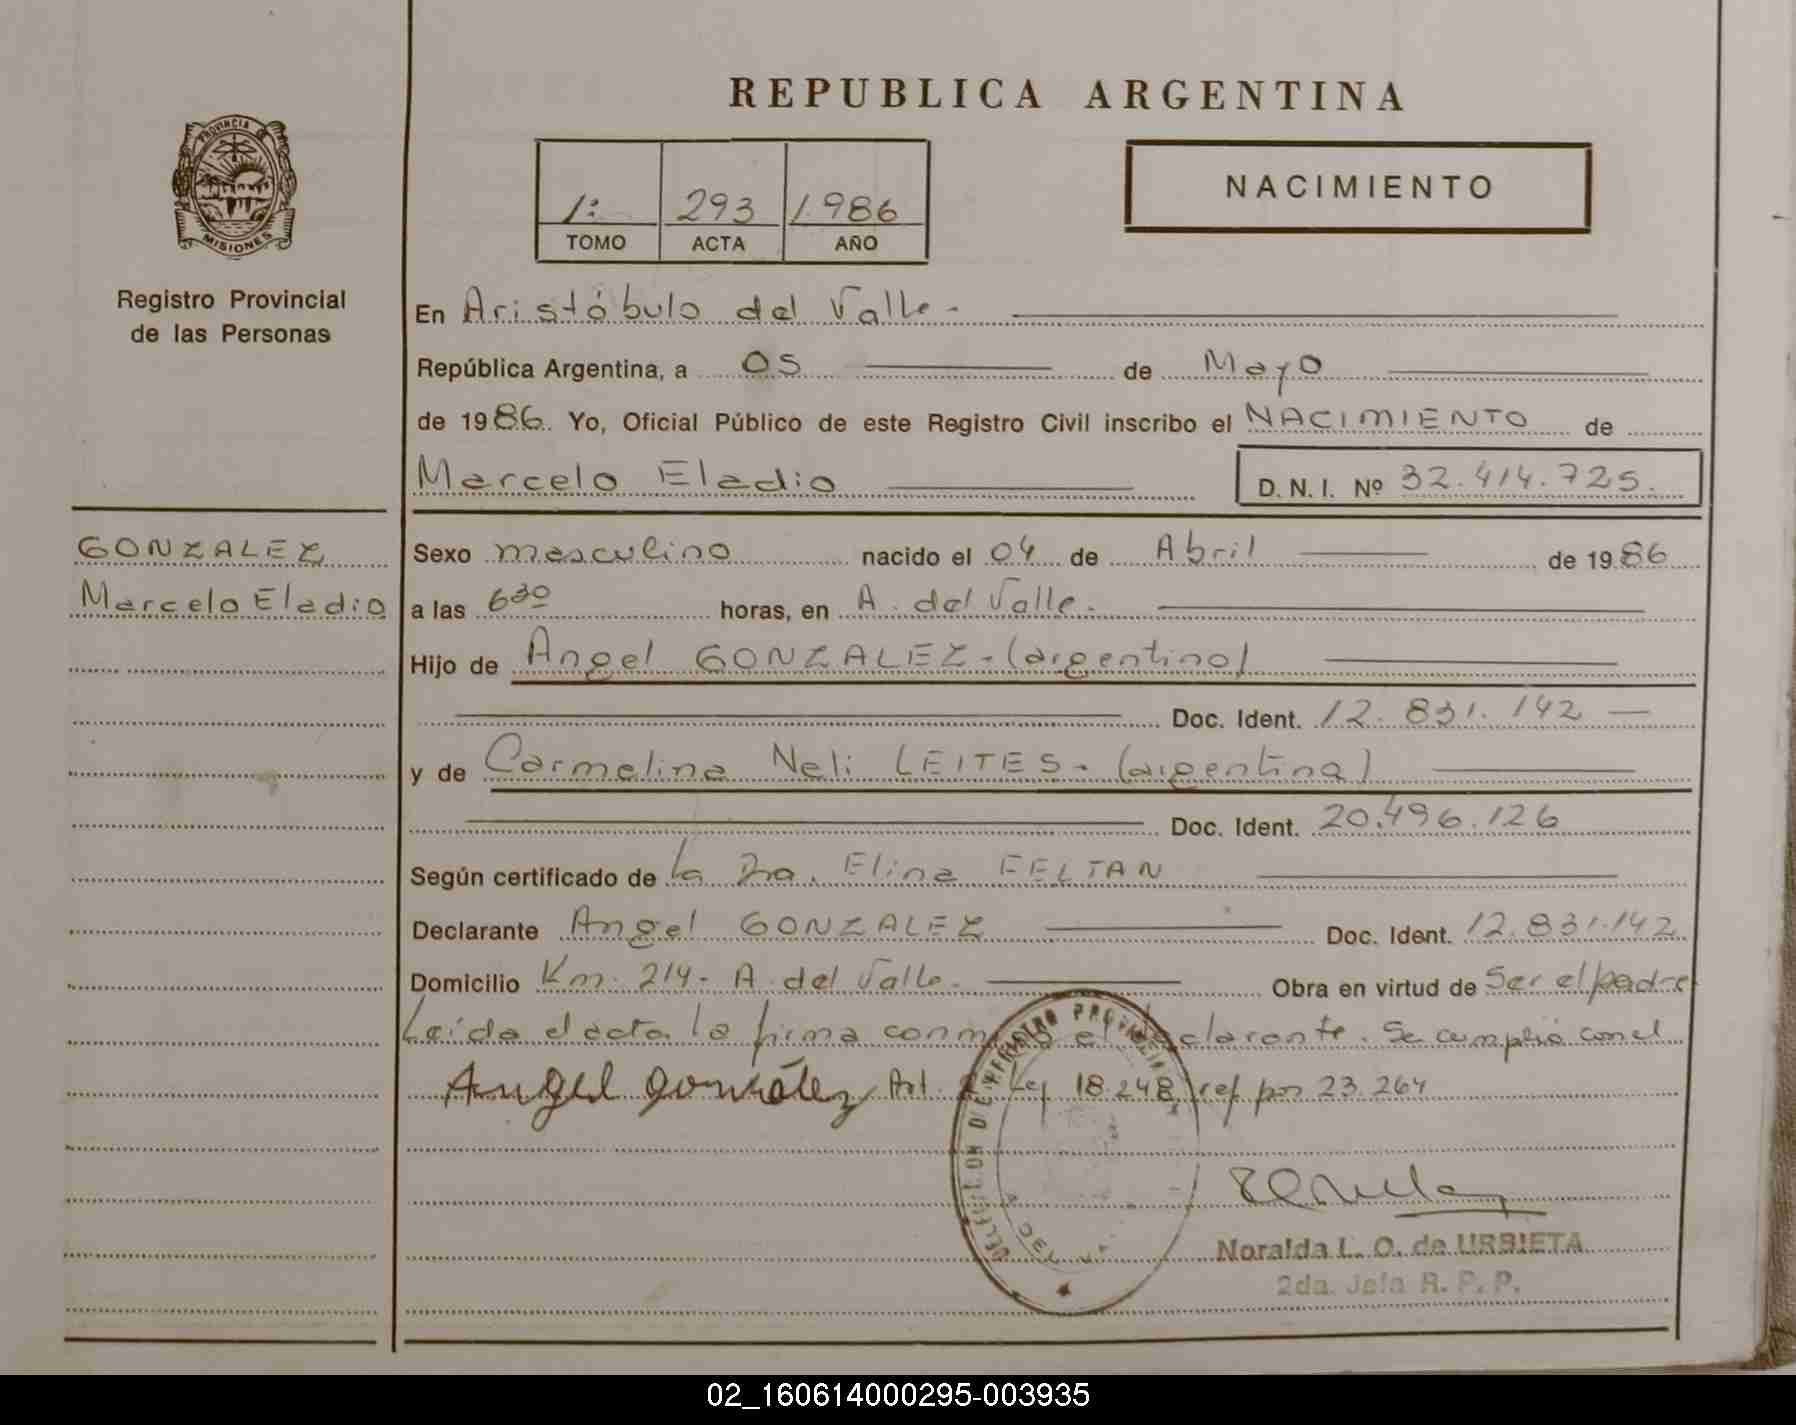 REPUBLICA ARGENTINA
PROVINCIA DE
MISIONES
Registro Provincial
de las Personas
1: 293 1986
TOMO ACTA AÑO
NACIMIENTO
En Aristóbulo del Valle.-
República Argentina, a 05 de Mayo
de 1986. Yo, Oficial Público de este Registro Civil inscribo el NACIMIENTO de
Marcelo Eladio D. N. I. Nº 32.414.725.
GONZALEZ
Marcelo Eladio
Sexo masculino nacido el 04 de Abril de 1986
a las 6 30 horas, en A. del Valle.-
Hijo de Angel GONZALEZ - (argentino)
Doc. Ident. 12.831.142 —
y de Carmelina Neli LEITES - (argentina)
Doc. Ident. 20.496.126
Según certificado de la Dra. Elina FELTAN
Declarante Angel GONZALEZ Doc. Ident. 12.831.142
Domicilio Km. 214 - A. del Valle.- Obra en virtud de Ser el padre
Leída el acta la firma conmigo el declarante. Se cumplió con el
Angel González Art. Ley 18.248, ref por 23.264
DELEGACION DEL REGISTRO PROVINCIAL
Noralda L. O. de URBIETA
2da. Jefa R. P. P.
02_160614000295-003935